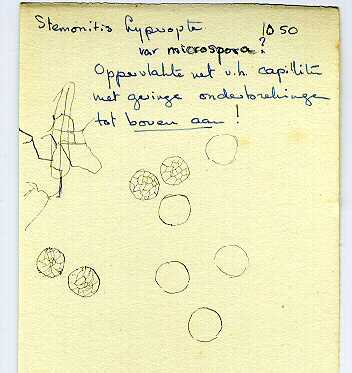 Stemonitis hyperopta 1050
var microspora?
Oppervlakte net v.h. capillitium
met geringe onderbrekingen
tot boven aan!